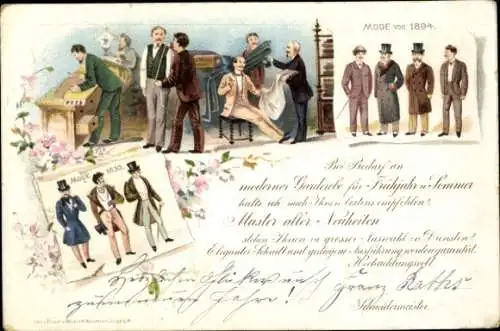 MODE von 1894.
MODE 1830.
Bei Bedarf an
moderner Garderobe für Frühjahr u. Sommer
halte ich mich Ihnen bestens empfohlen!
Muster aller Neuheiten
stehen Ihnen in grosser Auswahl zu Diensten!
Eleganter Schnitt und gediegene Ausführung werden garantirt.
Hochachtungsvoll
Franz
Schneidermeister.